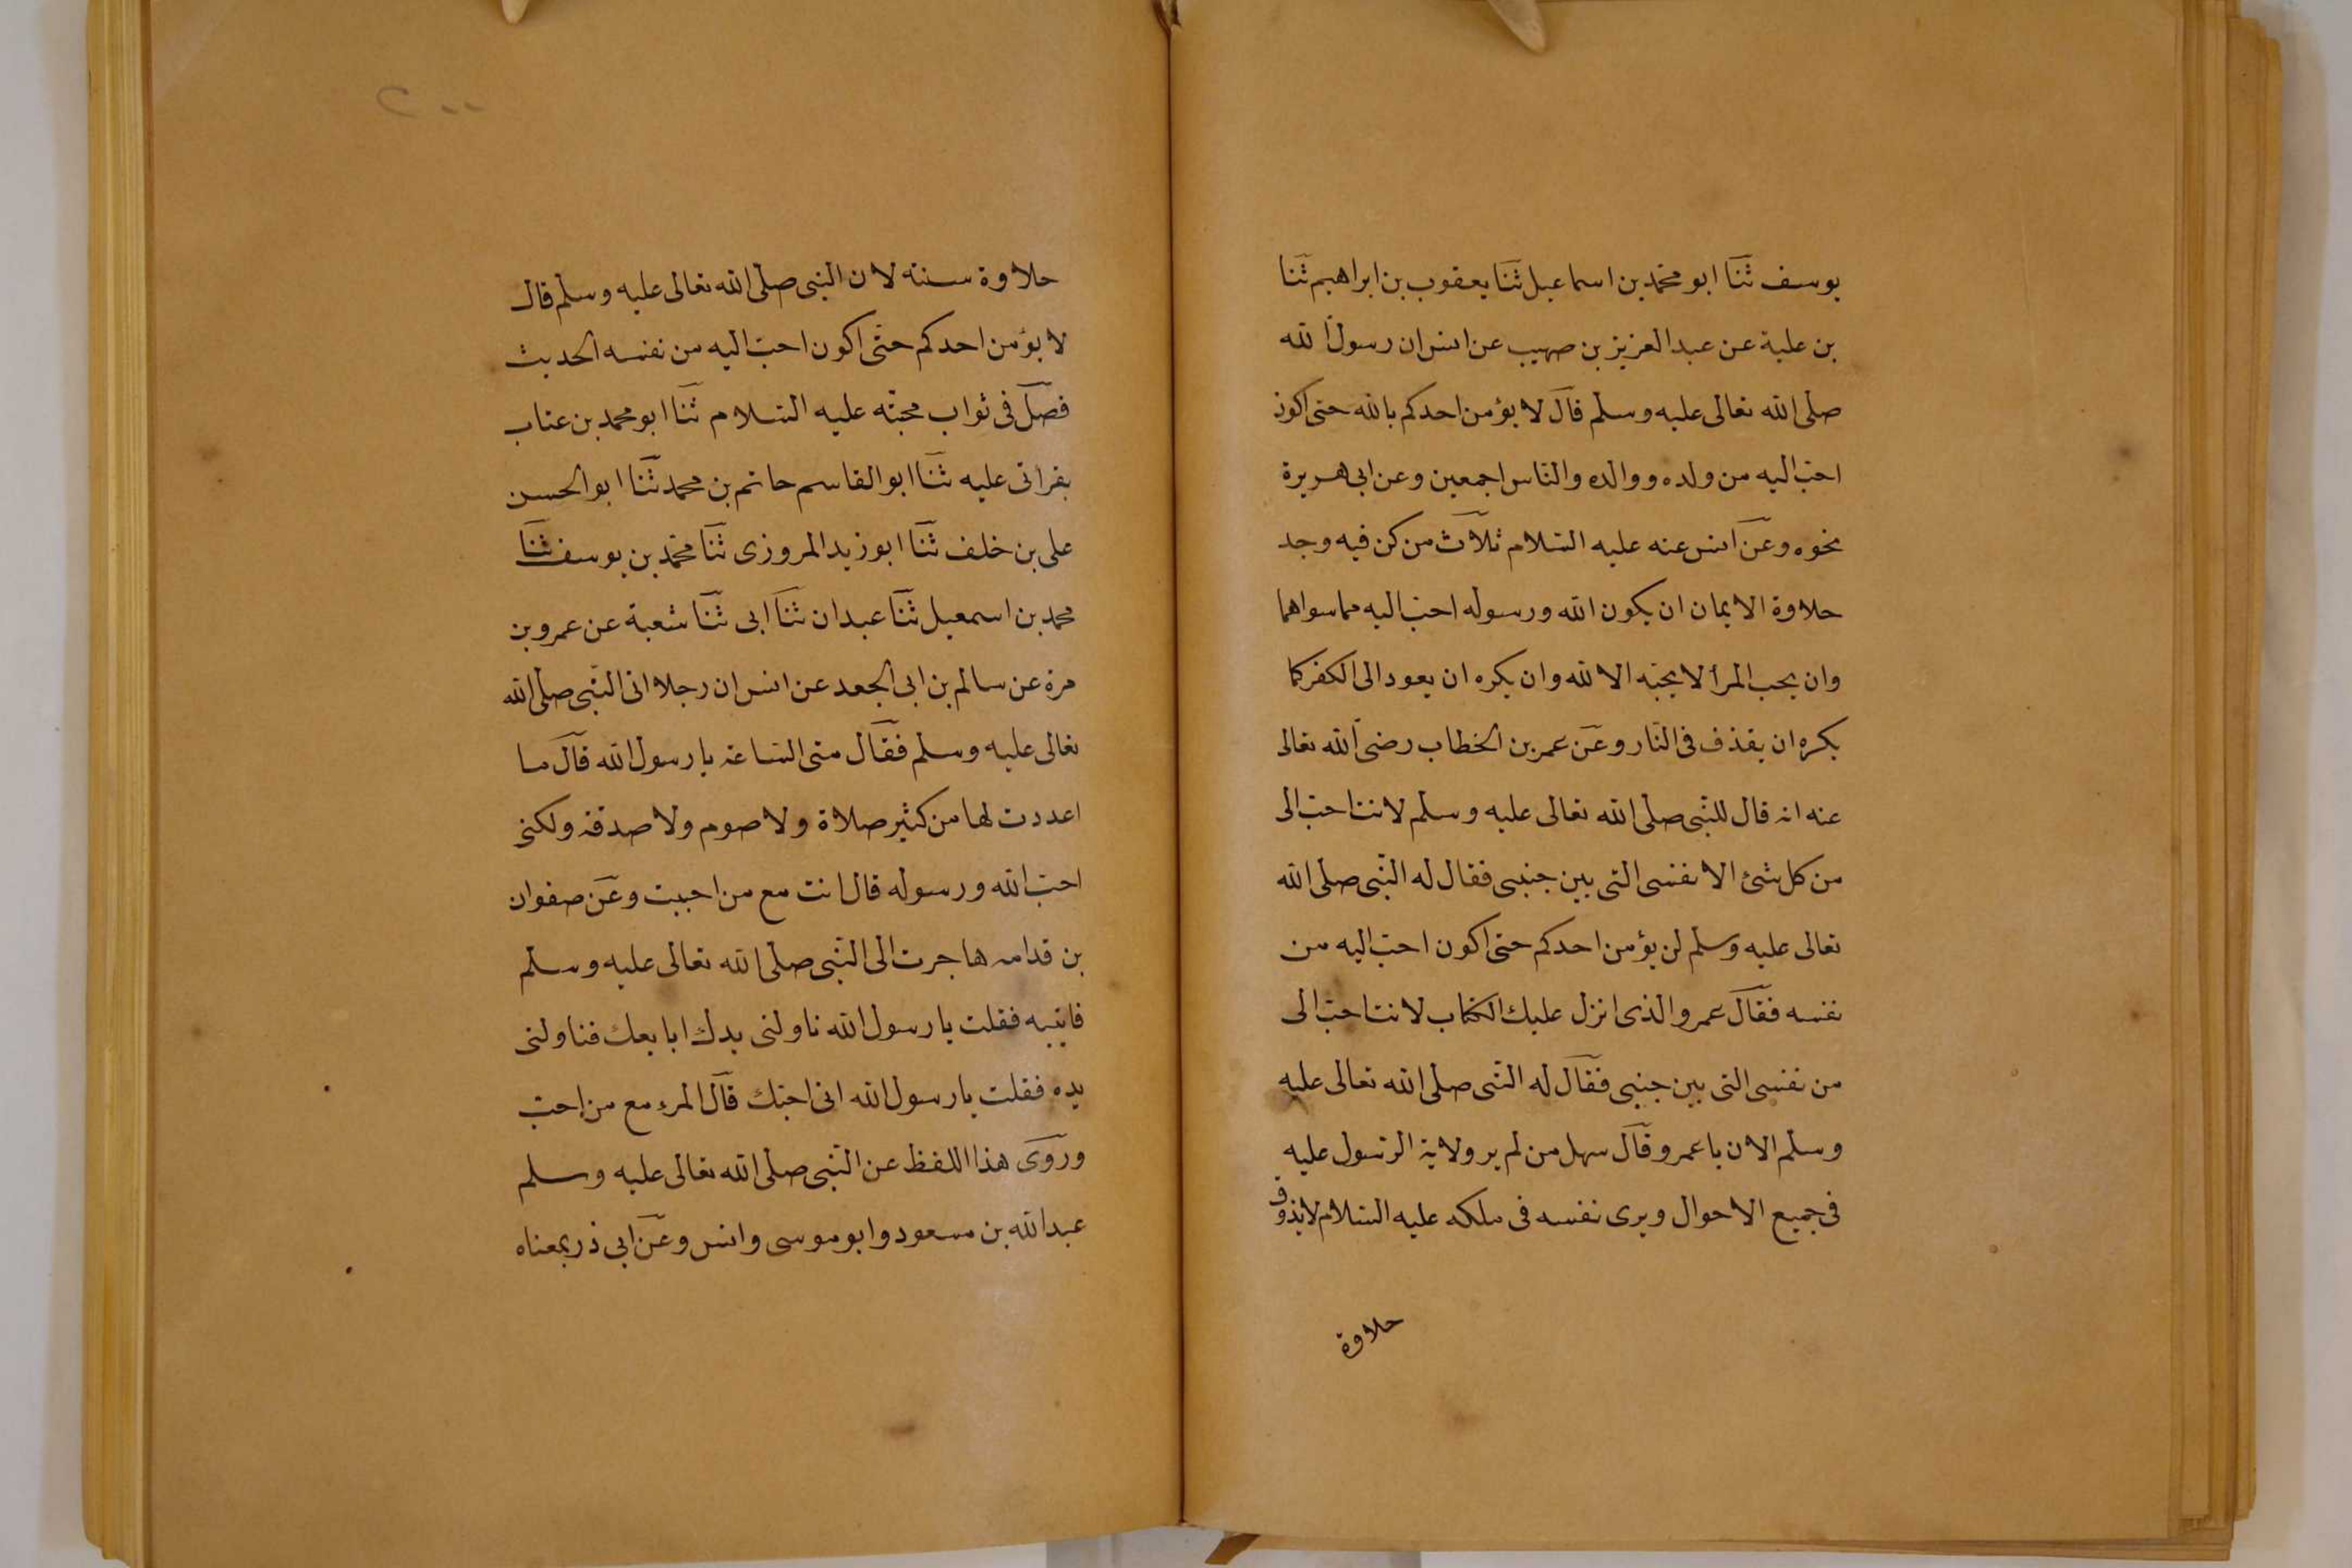 يوسف ثنا ابو محمد بن اسماعيل ثنا يعقوب بن ابراهيم ثنا
بن علية عن عبد العزيز بن صهيب عن انس ان رسول الله
صلى الله تعالى عليه وسلم قال لا يؤمن احدكم بالله حتى اكون
احب اليه من ولده ووالده والناس اجمعين وعن ابى هريرة
نحوه وعن انس عنه عليه السلام ثلاث من كن فيه وجد
حلاوة الايمان ان يكون الله ورسوله احب اليه مما سواهما
وان يحب المرأ لا يحبه الا لله وان يكره ان يعود الى الكفر كما
يكره ان يقذف فى النار وعن عمر بن الخطاب رضى الله تعالى
عنه انه قال للنبى صلى الله تعالى عليه وسلم لانت احب الى
من كل شئ الا نفسى التى بين جنبى فقال له النبى صلى الله
تعالى عليه وسلم لن يؤمن احدكم حتى اكون احب اليه من
نفسه فقال عمر والذى انزل عليك الكتاب لانت احب الى
من نفسى التى بين جنبى فقال له النبى صلى الله تعالى عليه
وسلم الان يا عمر وقال سهل من لم ير ولاية الرسول عليه
فى جميع الاحوال ويرى نفسه فى ملكه عليه السلام لا يذوق
حلاوة
٢٠٠
حلاوة سنته لان النبى صلى الله تعالى عليه وسلم قال
لا يؤمن احدكم حتى اكون احب اليه من نفسه الحديث
فصل فى ثواب محبته عليه السلام ثنا ابو محمد بن عتاب
بقراتى عليه ثنا ابو القاسم حاتم بن محمد ثنا ابو الحسن
على بن خلف ثنا ابو زيد المروزى ثنا محمد بن يوسف ثنا
محمد بن اسمعيل ثنا عبدان ثنا ابى ثنا شعبة عن عمرو بن
مرة عن سالم بن ابى الجعد عن انس ان رجلا اتى النبى صلى الله
تعالى عليه وسلم فقال متى الساعة يا رسول الله قال ما
اعددت لها من كثير صلاة ولا صوم ولا صدقة ولكنى
احب الله ورسوله قال انت مع من احببت وعن صفوان
بن قدامه هاجرت الى النبى صلى الله تعالى عليه وسلم
فاتيته فقلت يا رسول الله ناولنى يدك ابايعك فناولنى
يده فقلت يا رسول الله انى احبك قال المرء مع من احب
وروى هذا اللفظ عن النبى صلى الله تعالى عليه وسلم
عبد الله بن مسعود وابو موسى وانس وعن ابى ذر بمعناه